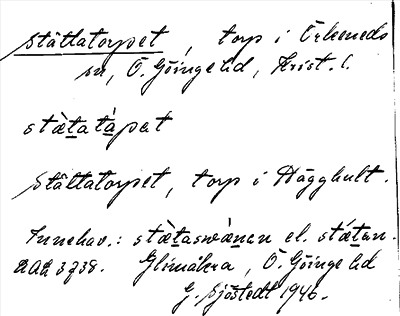 Stättatorpet, torp i Örkeneds
sn, Ö. Göinge hd, Krist. l.
stæ̀tatápat
Stättatorpet, torp i Hägghult.
Innehav.: stæ̀taswæ̀nen el. stǽtan.
2 A a 3738. Glimåkra, Ö. Göinge hd
G. Sjöstedt 1946.